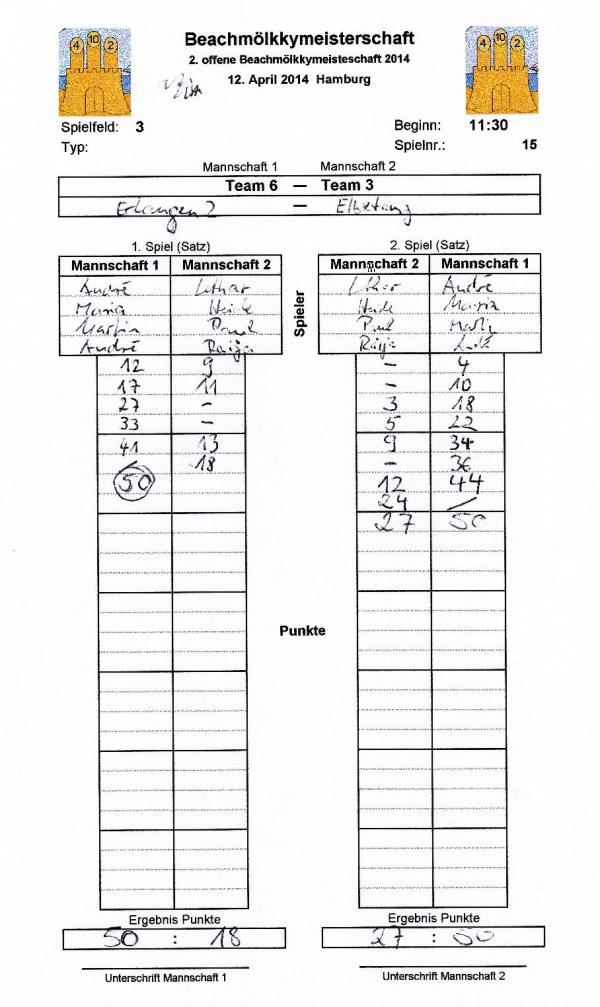 4 10 2
Beachmölkkymeisterschaft
4 10 2
2. offene Beachmölkkymeisteschaft 2014
12. April 2014 Hamburg
Spielfeld: 3
Beginn: 11:30
Typ:
Spielnr.: 15
Mannschaft 1 Mannschaft 2
Team 6 — Team 3
Erlangen 2 —
1. Spiel (Satz) 2. Spiel (Satz)
Mannschaft 1 Mannschaft 2 Mannschaft 2 Mannschaft 1
Spieler
André Lothar Lothar André
Maria Heide Heide Maria
Martin Paul Paul Martin
André Raija Raija André
12 9 – 4
17 11 – 10
27 – 3 18
33 – 5 22
41 13 9 34
18 – 36
50 12 44
24 /
27 50
Punkte
Ergebnis Punkte Ergebnis Punkte
50 : 18 27 : 50
Unterschrift Mannschaft 1 Unterschrift Mannschaft 2